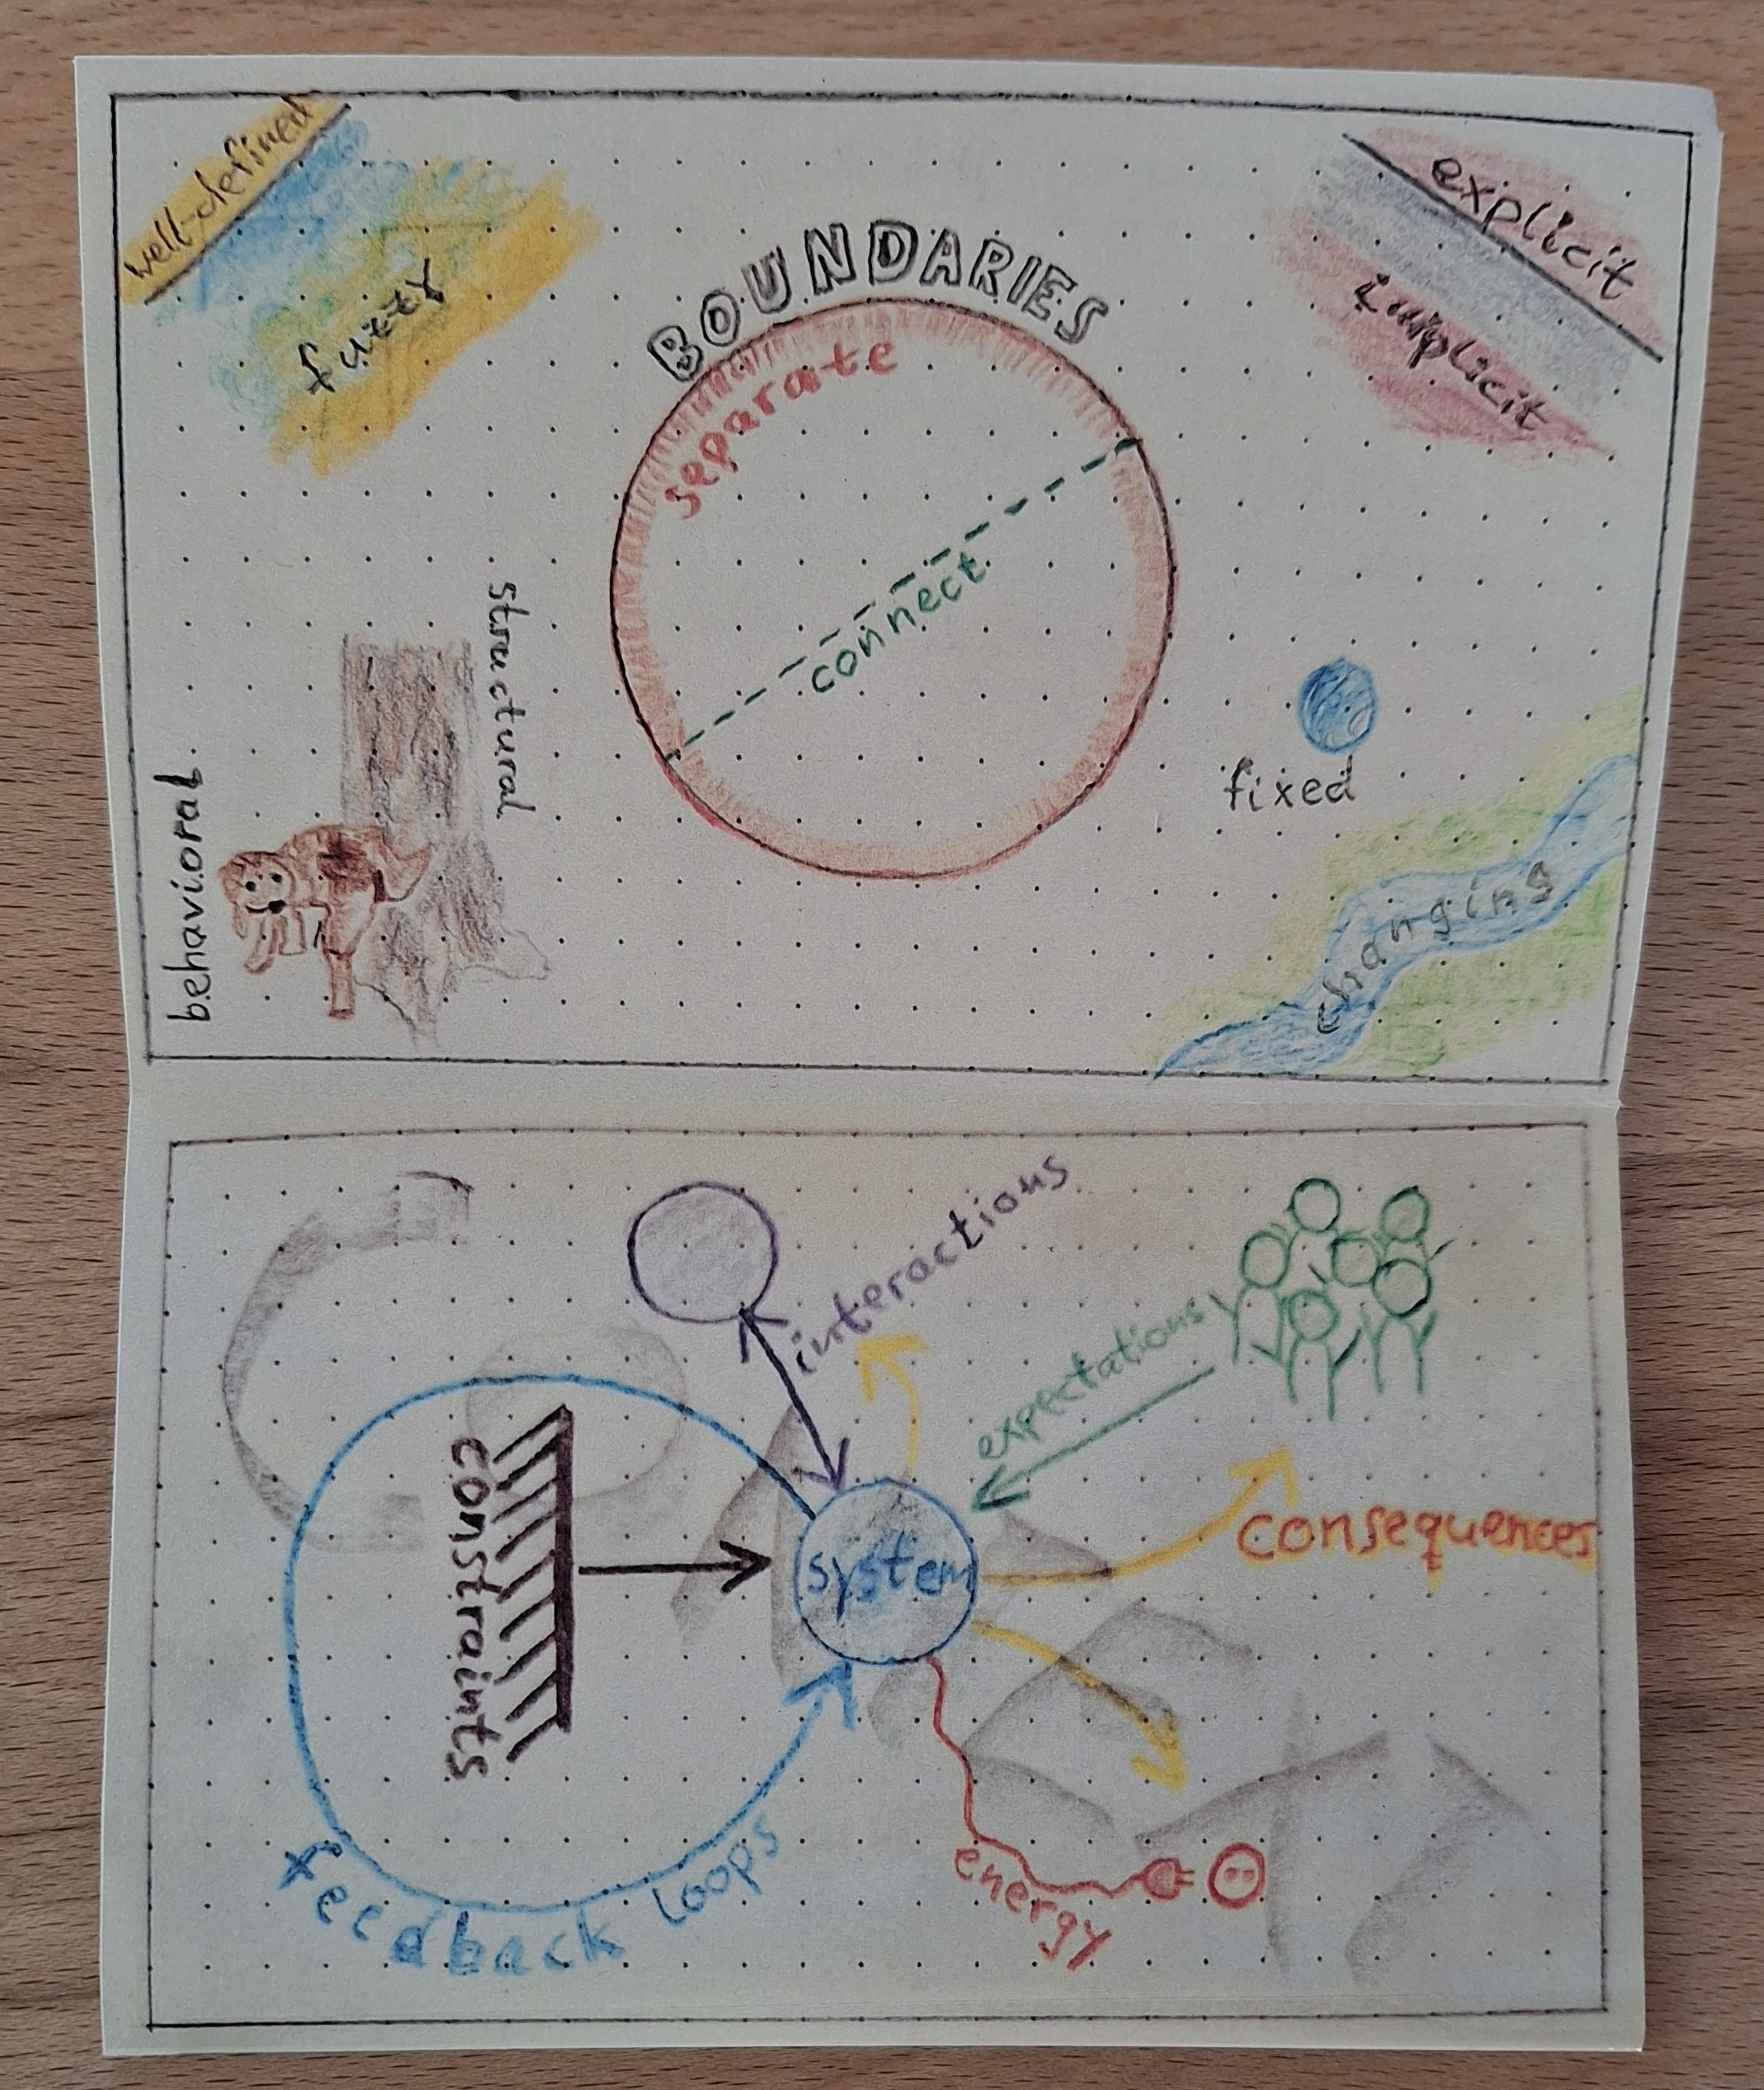 well-defined
fuzzy
BOUNDARIES
separate
connect
explicit
implicit
structural
behavioral
fixed
changing
interactions
expectations
constraints
system
consequences
feedback loops
energy